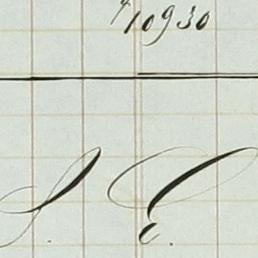 10930
S. E.